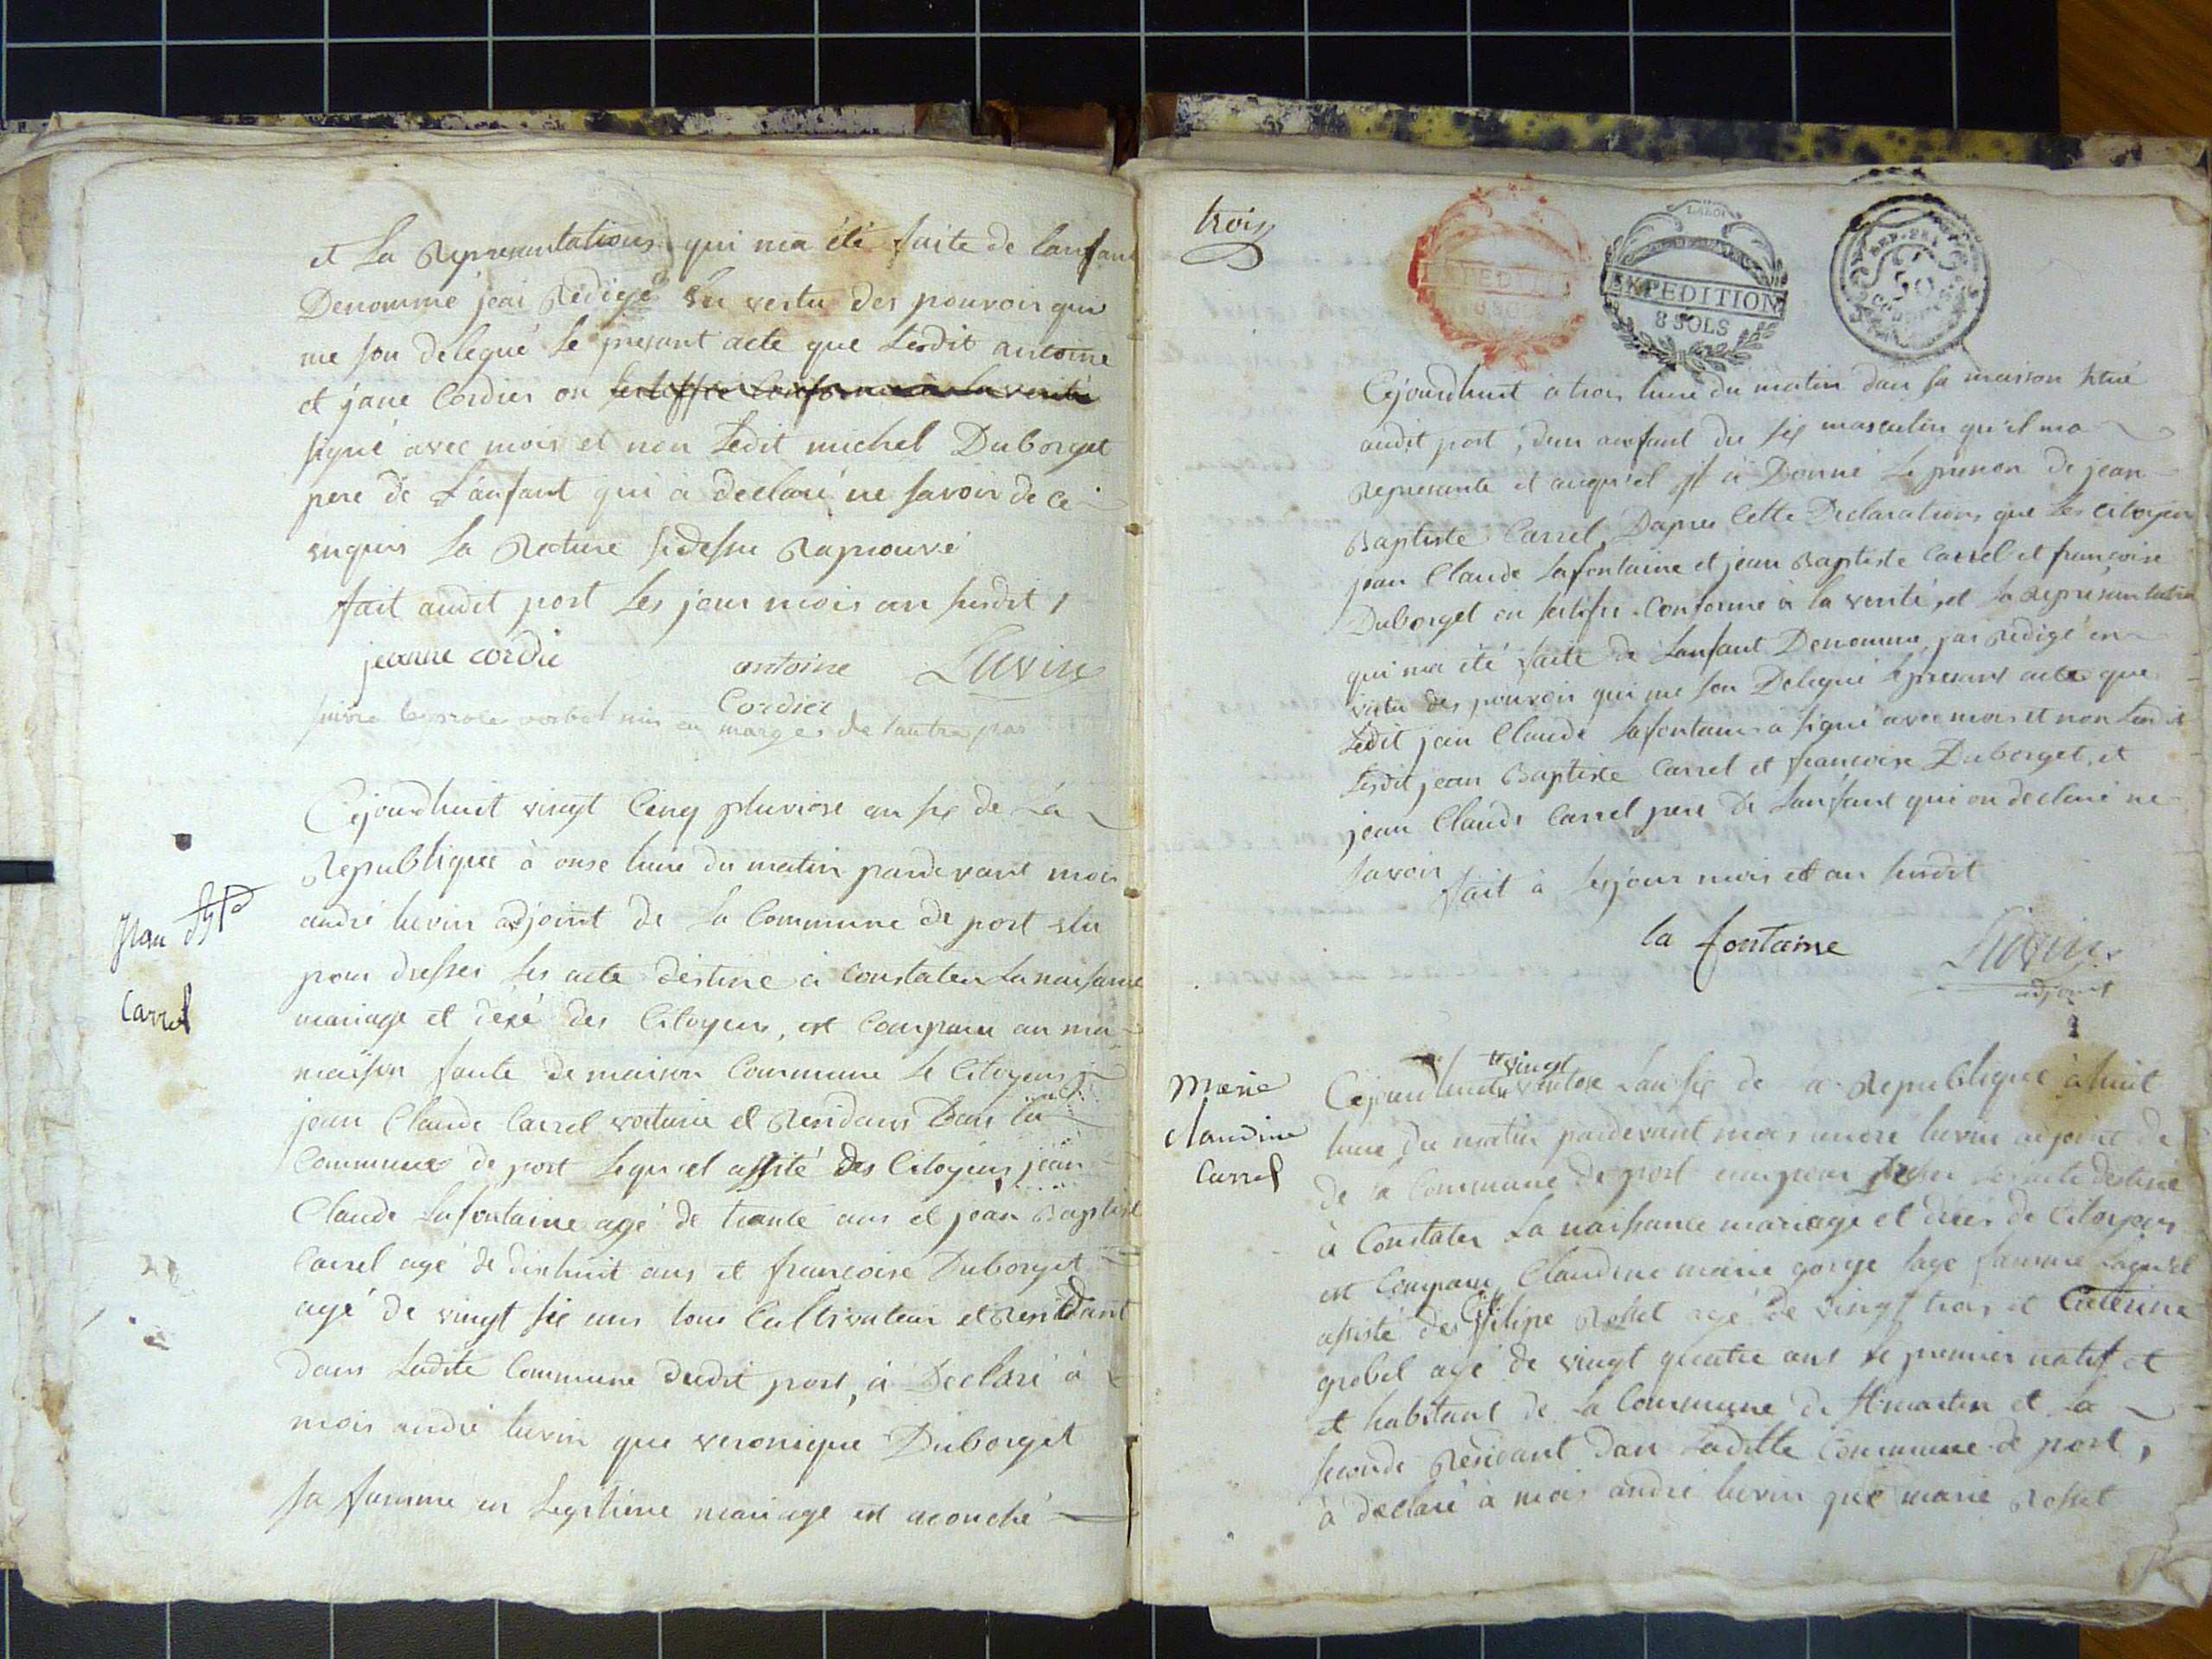 et La Representations qui ma été faite de lanfant
Denommé jeai Redigé En vertu des pouvoir qui
me son delegué Le presant acte que Lesdit antoine
et jane Cordier on
signé avec mois et non Ledit michel Duborget
pere de L'anfant qui a declaré ne savoir de ce
enquis La Roture sidessu Raprouvé
fait audit port Les jour mois an susdit,
jeanne cordie
antoine Cordier
Luvin
verbal mis en marges de lautre par
Jean Bpte
Carrel
Cejourdhuit vingt Cinq pluviose an six de La
Republique à onse heure du matin pardevant mois
andré luvin adjoint de la Commune de port elu
pour dresser les acte destiné à Constater La naisance
mariage et décé des Citoyens, est Comparu an ma
maison faute de maison Commune le Citoyens
jean Claude Carrel voiturié et Residans Dans la
Commune de port lequel assité des Citoyens jean
Claude Lafontaine agé de trante ans et jean Baptiste
Carrel agé de dixhuit ans et francoise Duborget
agé de vingt six ans tous Cultivateur et Residant
dans Ladite Commune dudit port, à Declaré à
mois andré luvin que veronique Duborget
sa famme en Legitime mariage est acouché
trois
EXPEDITION
8 SOLS
LA LOI
EXPEDITION
8 SOLS
REP. FRA
50
Cejourdhuit à trois heure du matin dan sa maison situé
audit port, dun anfant du six masculin qu'il ma
Represante et auquel il à Donné Le prenon de jean
Baptiste Carrel, Dapres Cette Declarations que Les Citoyen
jean Claude Lafontaine et jean Baptiste Carrel et françoise
Duborget on sertifié Conforme à la verité, et La Representation
qui ma été faite de Lanfant Denommé, jai Redigé en
vertu des pouvoir qui me son Delegué le presant acte que
Ledit jean Claude Lafontaine à signé avec mois et non
Lesdit jean Baptiste Carrel et francoise Duborget, et
jean Claude Carrel pere de Lanfant qui on declaré ne
savoir
fait à Les jour mois et an susdit
la fontaine
Luvin
adjoint
Marie
claudine
Carrel
Cejourdhuit vingt ventose Lan six de La Republique à huit
heure du matin pardevant mois andré luvin adjoint de
de la Commune de port elu pour dresser les acte destiné
à Constater La naissance mariage et décés de Citoyens
est Comparu Claudine marie gorge sage famme Laquel
assisté des Cit filipe Rosset agé de vingt trois et Caterine
grobel agé de vingt quatre ans le premier natif et
et habitant de la Commune de St martin et La
seconde Residant dan Laditte Commune de port,
à declaré à mois andré luvin que marie Rosset